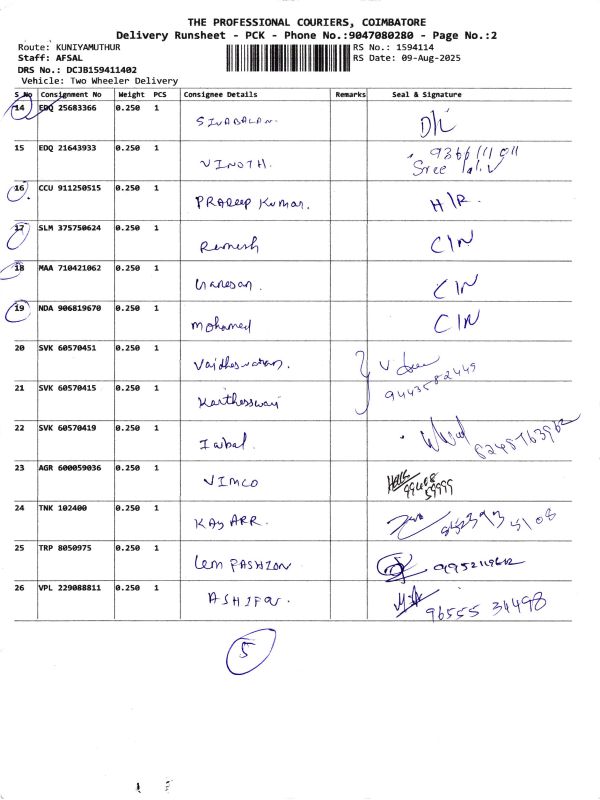 THE PROFESSIONAL COURIERS, COIMBATORE
Delivery Runsheet - PCK - Phone No.:9047080280 - Page No.:2
Route: KUNIYAMUTHUR RS No.: 1594114
Staff: AFSAL RS Date: 09-Aug-2025
DRS No.: DCJB159411402
Vehicle: Two Wheeler Delivery
S_No Consignment No Weight PCS Consignee Details Remarks Seal & Signature
14 EDQ 25683366 0.250 1 SIVABALAN. D/L
15 EDQ 21643933 0.250 1 VINOTH. Sree
16 CCU 911250515 0.250 1 PRADeep Kumar. H/R.
17 SLM 375750624 0.250 1 Ramesh C/N
18 MAA 710421062 0.250 1 Ganesan. C/N
19 NDA 906819670 0.250 1 Mohamed C/N
20 SVK 60570451 0.250 1 Vaidheswaran.
21 SVK 60570415 0.250 1 9443582449
22 SVK 60570419 0.250 1 Iqbal. 8248763962
23 AGR 600059036 0.250 1 VIMCO 99408 59999
24 TNK 102400 0.250 1 KAY ARR.
25 TRP 8050975 0.250 1 Lem FASHION
26 VPL 229088811 0.250 1 96555 34498
5